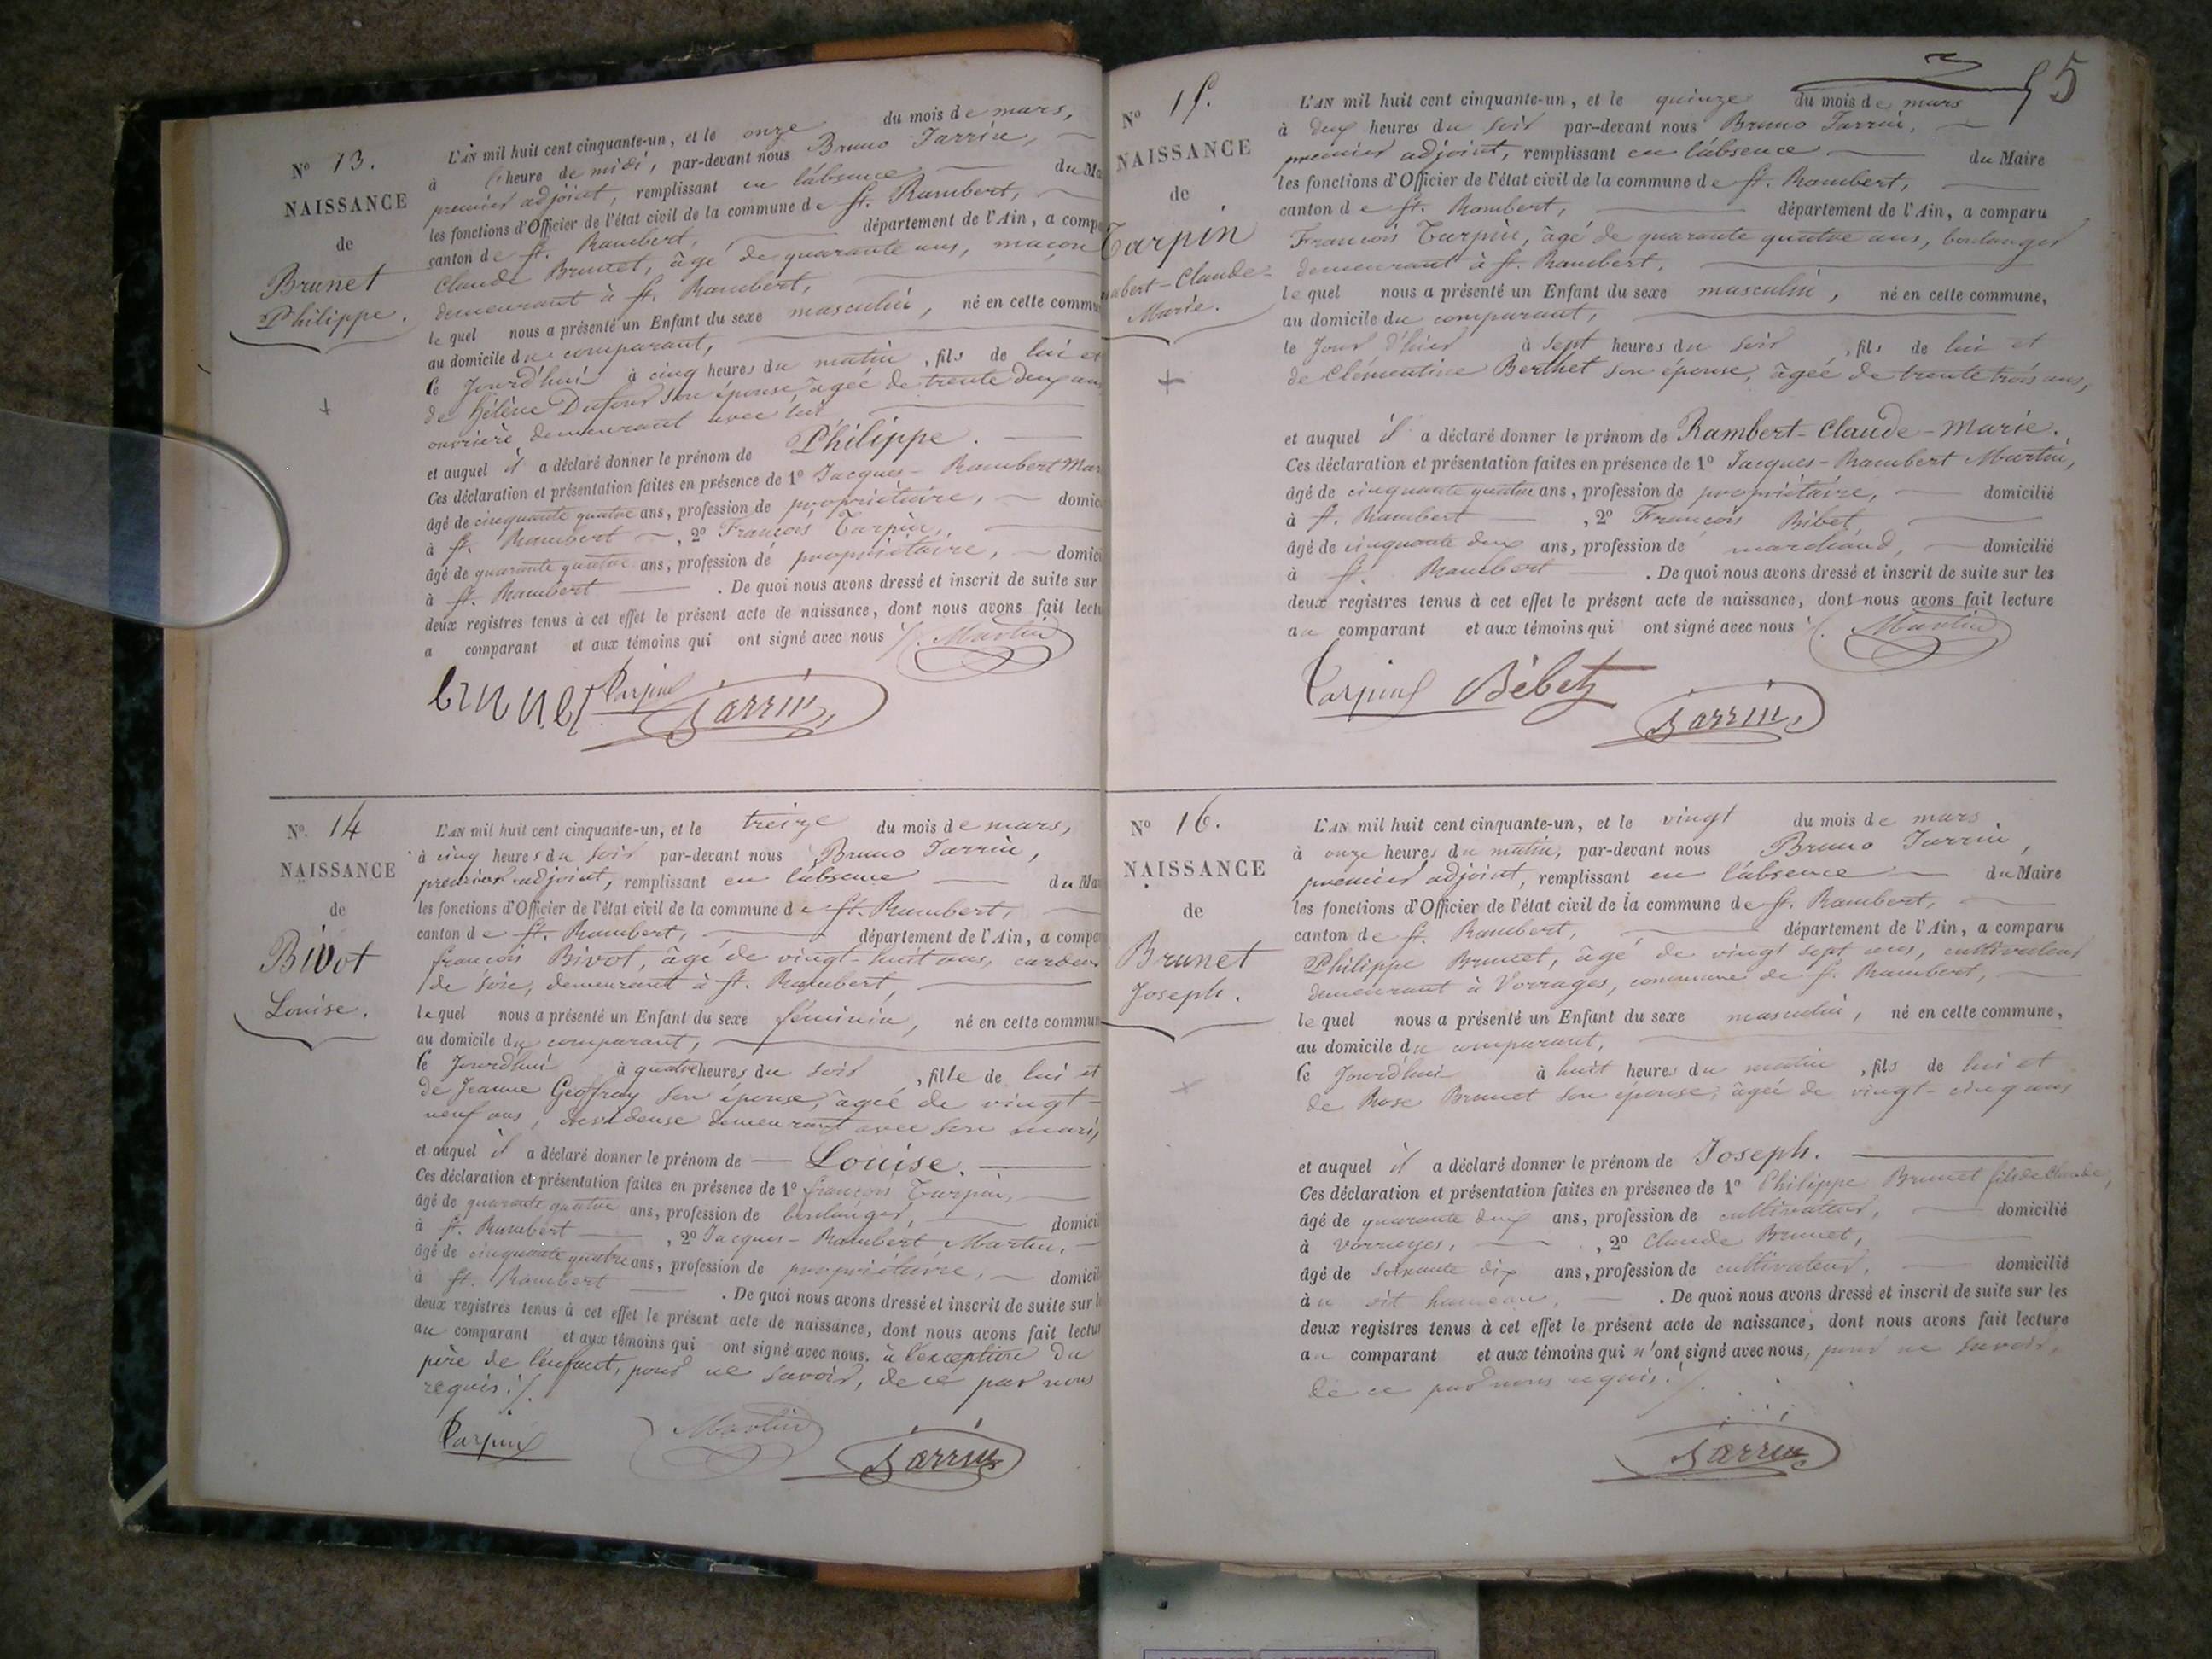 N° 13.
NAISSANCE
de
Brunet
Philippe.
L'AN mil huit cent cinquante-un, et le onze du mois de mars,
à l'heure de midi, par-devant nous Bruno Jarrin,
premier adjoint, remplissant en l'absence du Ma
les fonctions d'Officier de l'état civil de la commune de St. Rambert,
canton de St. Rambert, département de l'Ain, a comp
Claude Brunet, âgé de quarante ans, maçon
demeurant à St. Rambert,
lequel nous a présenté un Enfant du sexe masculin, né en cette commu
au domicile du comparant,
le jourd'hui à cinq heures du matin, fils de lui et
de Hélène Dufour son épouse, âgée de trente deux ans
ouvrière demeurant avec lui
et auquel il a déclaré donner le prénom de Philippe.
Ces déclaration et présentation faites en présence de 1° Jacques-Rambert Mar
âgé de cinquante quatre ans, profession de propriétaire, domic
à St. Rambert, 2° François Tarpin,
âgé de quarante quatre ans, profession de propriétaire, domici
à St. Rambert. De quoi nous avons dressé et inscrit de suite sur
deux registres tenus à cet effet le présent acte de naissance, dont nous avons fait lectu
a comparant et aux témoins qui ont signé avec nous ./. Martin
brunet Tarpin Jarrin
N° 14
NAISSANCE
de
Bivot
Louise.
L'AN mil huit cent cinquante-un, et le treize du mois de mars,
à cinq heures du soir par-devant nous Bruno Jarrin,
premier adjoint, remplissant en l'absence du Mai
les fonctions d'Officier de l'état civil de la commune de St. Rambert,
canton de St. Rambert, département de l'Ain, a compa
françois Bivot, âgé de vingt-huit ans, cardeur
de soie, demeurant à St. Rambert,
lequel nous a présenté un Enfant du sexe féminin, né en cette commun
au domicile du comparant,
le jourd'hui à quatre heures du soir, fille de lui et
de Jeanne Geoffray son épouse, âgée de vingt-
neuf ans, demeurant avec son mari,
et auquel il a déclaré donner le prénom de Louise.
Ces déclaration et présentation faites en présence de 1° françois Tarpin,
âgé de quarante quatre ans, profession de boulanger, domicil
à St. Rambert, 2° Jacques-Rambert Martin,
âgé de cinquante quatre ans, profession de propriétaire, domicil
à St. Rambert. De quoi nous avons dressé et inscrit de suite sur l
deux registres tenus à cet effet le présent acte de naissance, dont nous avons fait lectur
au comparant et aux témoins qui ont signé avec nous, à l'exception du
père de l'enfant, pour ne savoir, de ce par nous
requis ./.
Tarpin Martin Jarrin
5
N° 15.
NAISSANCE
de
Tarpin
mbert-Claude-
Marie.
L'AN mil huit cent cinquante-un, et le quinze du mois de mars
à deux heures du soir par-devant nous Bruno Jarrin,
premier adjoint, remplissant en l'absence du Maire
les fonctions d'Officier de l'état civil de la commune de St. Rambert,
canton de St. Rambert, département de l'Ain, a comparu
François Tarpin, âgé de quarante quatre ans, boulanger
demeurant à St. Rambert,
lequel nous a présenté un Enfant du sexe masculin, né en cette commune,
au domicile du comparant,
le jour d'hier à sept heures du soir, fils de lui et
de Clémentine Berthet son épouse, âgée de trente trois ans,
et auquel il a déclaré donner le prénom de Rambert-Claude-Marie.
Ces déclaration et présentation faites en présence de 1° Jacques-Rambert Martin,
âgé de cinquante quatre ans, profession de propriétaire, domicilié
à St. Rambert, 2° François Bibet,
âgé de cinquante deux ans, profession de marchand, domicilié
à St. Rambert. De quoi nous avons dressé et inscrit de suite sur les
deux registres tenus à cet effet le présent acte de naissance, dont nous avons fait lecture
au comparant et aux témoins qui ont signé avec nous ./. Martin
Tarpin Bébet Jarrin
N° 16.
NAISSANCE
de
Brunet
Joseph.
L'AN mil huit cent cinquante-un, et le vingt du mois de mars
à onze heures du matin, par-devant nous Bruno Jarrin,
premier adjoint, remplissant en l'absence du Maire
les fonctions d'Officier de l'état civil de la commune de St. Rambert,
canton de St. Rambert, département de l'Ain, a comparu
Philippe Brunet, âgé de vingt sept ans, cultivateur
demeurant à Vorrages, commune de St. Rambert,
lequel nous a présenté un Enfant du sexe masculin, né en cette commune,
au domicile du comparant,
le jourd'hui à huit heures du matin, fils de lui et
de Rose Brunet son épouse, âgée de vingt-cinq ans
et auquel il a déclaré donner le prénom de Joseph.
Ces déclaration et présentation faites en présence de 1° Philippe Brunet fils de Claude,
âgé de quarante deux ans, profession de cultivateur, domicilié
à Vorrages, 2° Claude Brunet,
âgé de soixante dix ans, profession de cultivateur, domicilié
à u dit hameau. De quoi nous avons dressé et inscrit de suite sur les
deux registres tenus à cet effet le présent acte de naissance, dont nous avons fait lecture
au comparant et aux témoins qui n'ont signé avec nous, pour ne savoir,
de ce par nous requis ./.
Jarrin